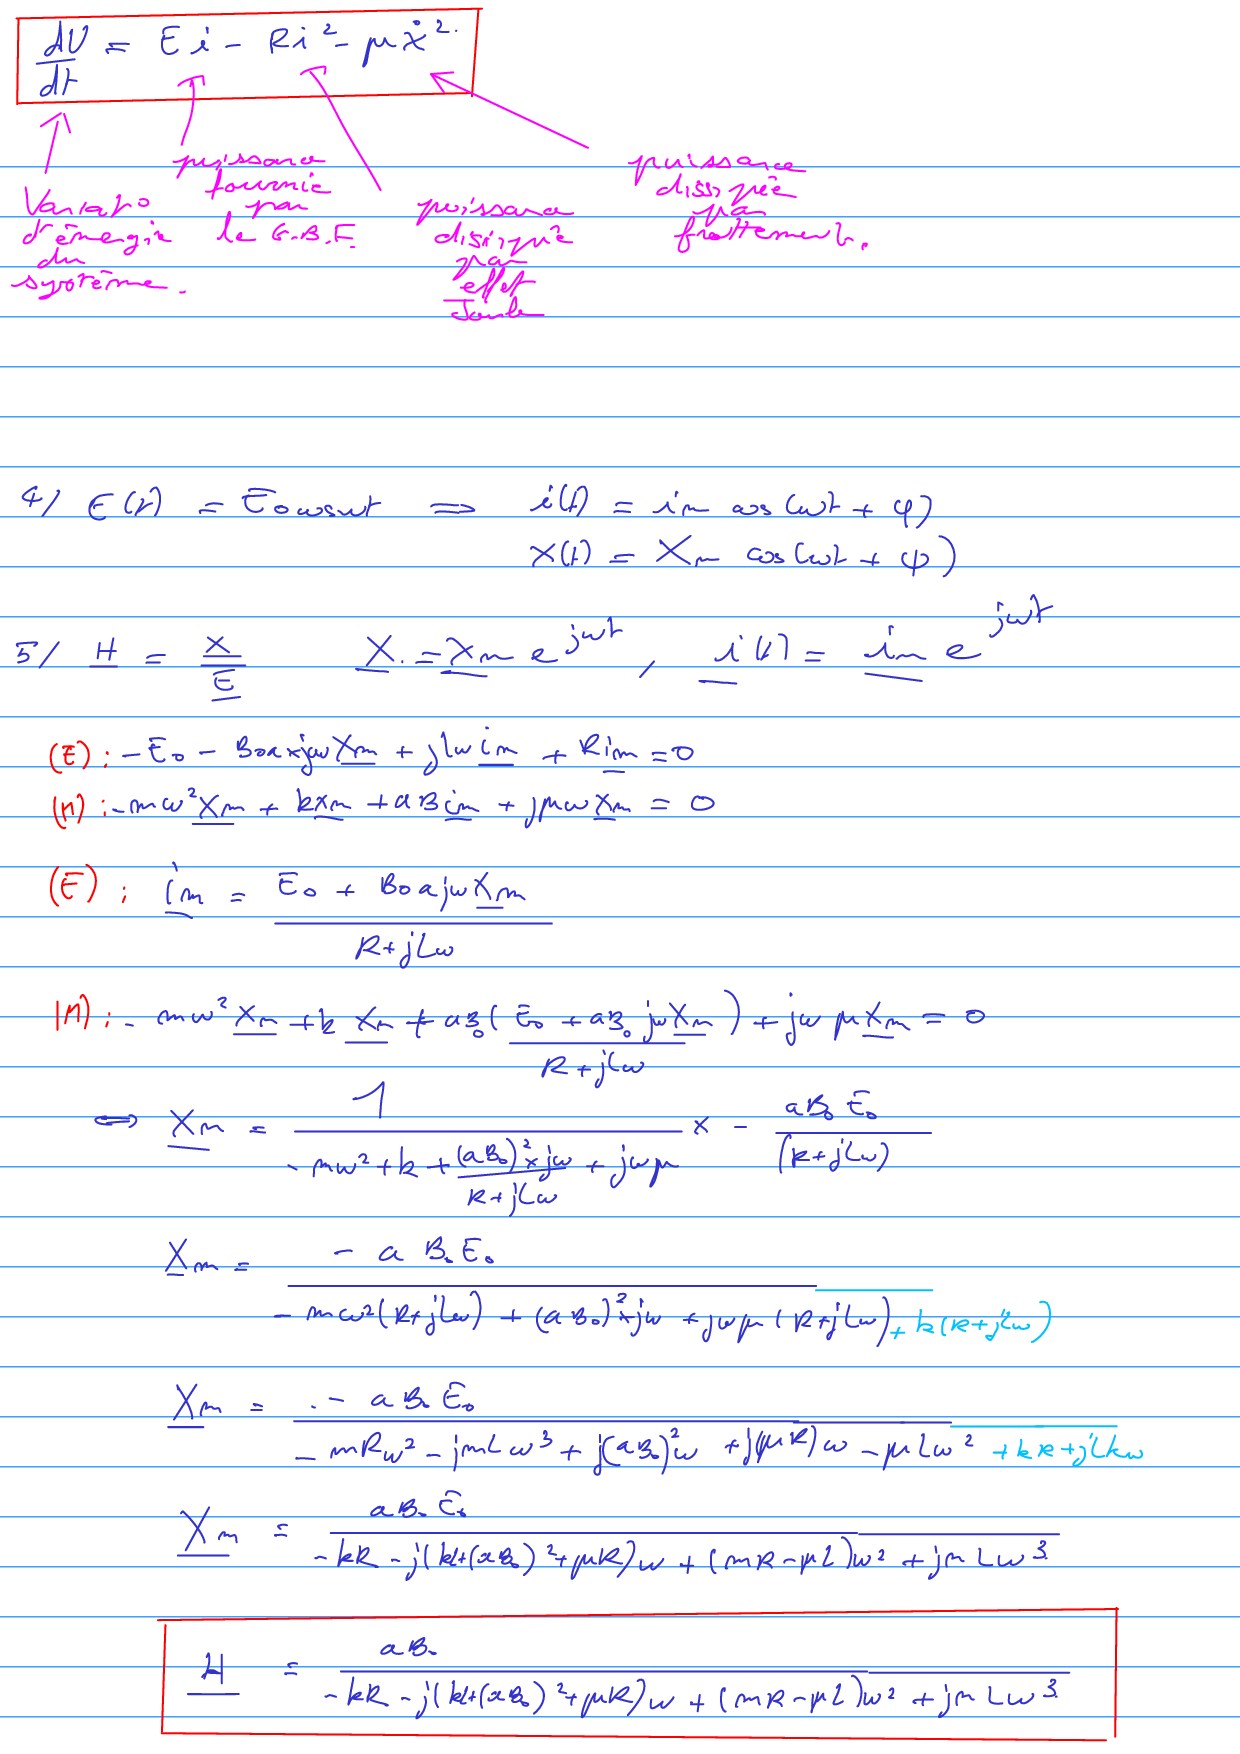 dU/dt = Ei - Ri² - μẋ².
Variat° d'énergie du système.
puissance fournie par le G.B.F.
puissance dissipée par effet Joule
puissance dissipée par frottement.
4/ E(t) = E₀ cosωt ⟹ i(t) = im cos(ωt + φ)
X(t) = Xm cos(ωt + ψ)
5/ H = X/E X = Xm e^jωt , i(t) = im e^jωt
(E) : - E₀ - B₀a×jω Xm + jLω im + R im = 0
(M) : - mω² Xm + k Xm + aB im + jμω Xm = 0
(E) : im = (E₀ + B₀ a jω Xm)/(R + jLω)
(M) : - mω² Xm + k Xm + aB₀ ((E₀ + aB₀ jω Xm)/(R + jLω)) + jω μ Xm = 0
⟺ Xm = 1/(- mω² + k + ((aB₀)² × jω)/(R + jLω) + jωμ) × - aB₀ E₀/(R + jLω)
Xm = - a B₀ E₀/(- mω²(R + jLω) + (aB₀)² × jω + jωμ (R + jLω) + k(R + jLω))
Xm = - a B₀ E₀/(- mRω² - jmLω³ + j(aB₀)²ω + j(μR)ω - μLω² + kR + jLkω)
Xm = aB₀ E₀/(- kR - j(kL + (aB₀)² + μR)ω + (mR - μL)ω² + jmLω³)
H = aB₀/(- kR - j(kL + (aB₀)² + μR)ω + (mR - μL)ω² + jmLω³)